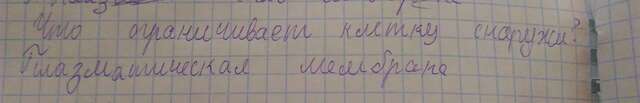 Что ограничивает клетку снаружи?
Плазматическая мембрана